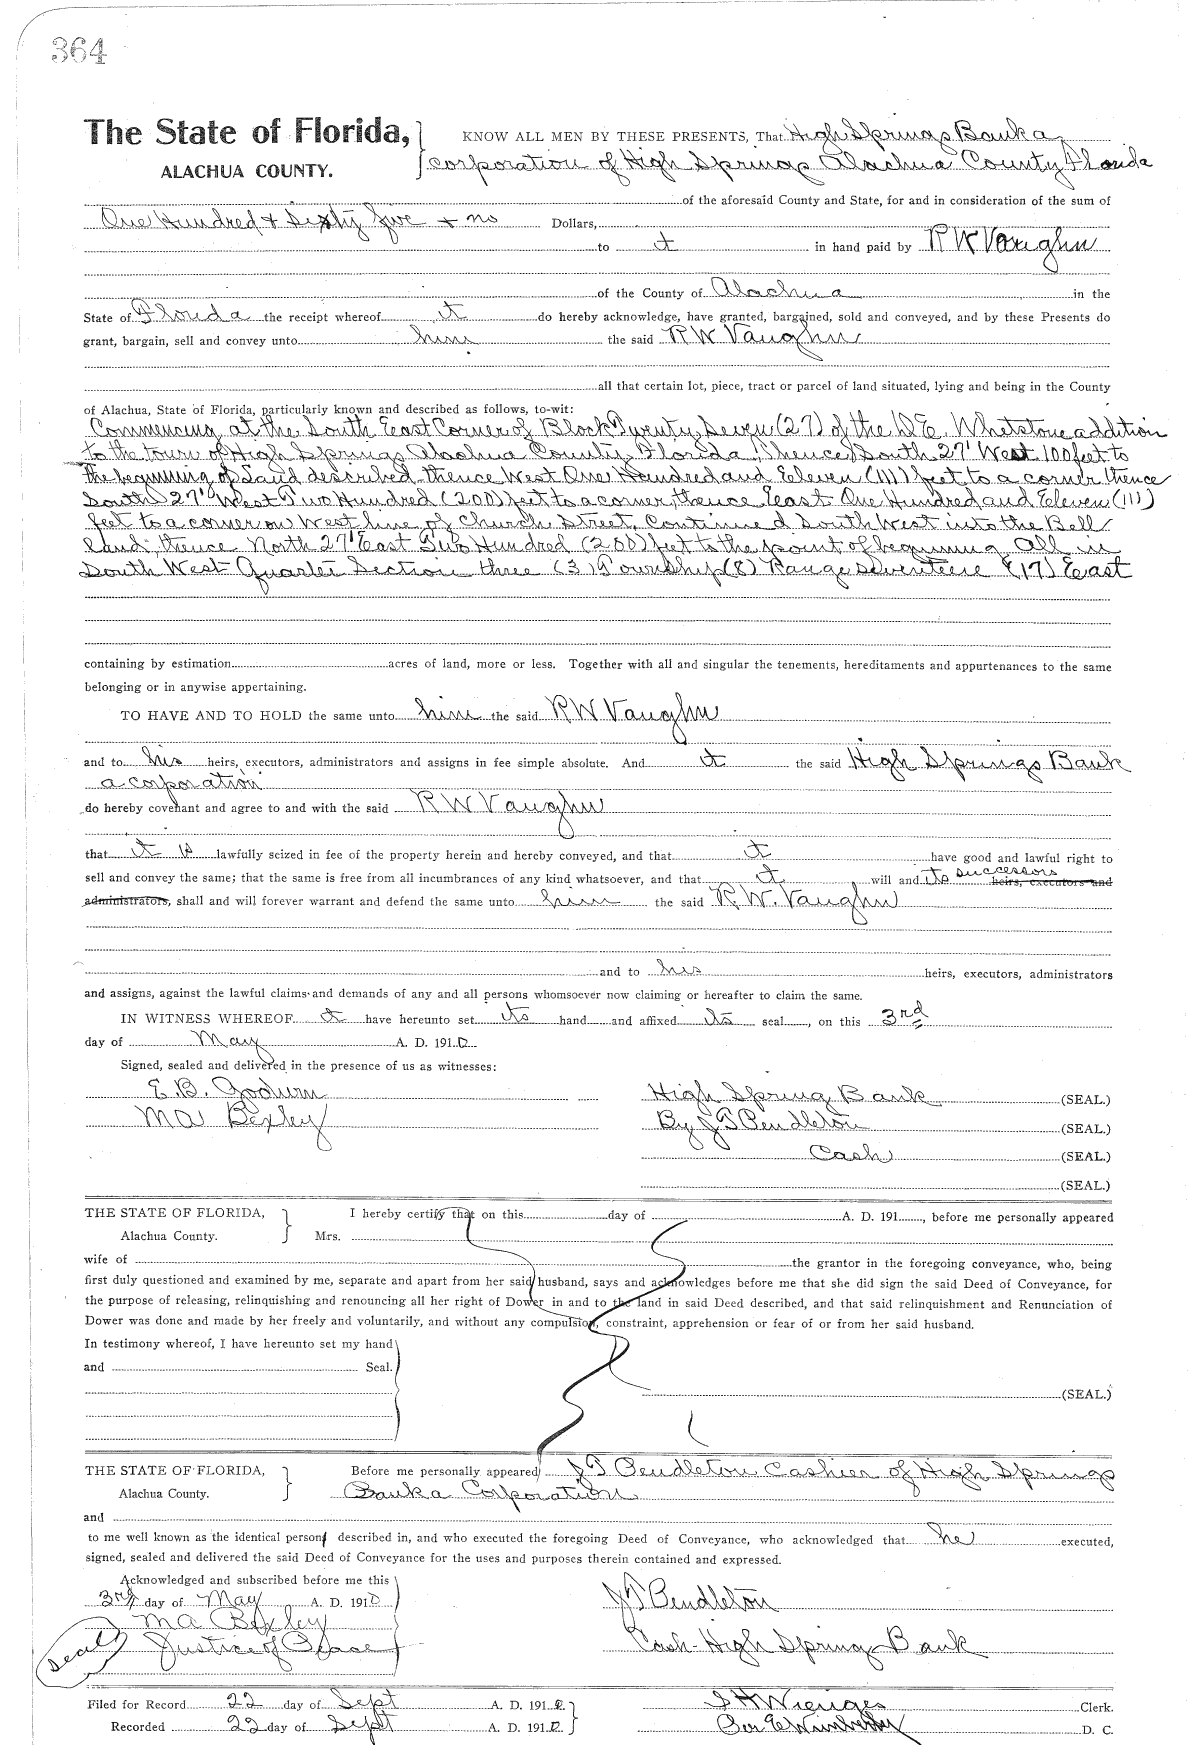 364
The State of Florida, KNOW ALL MEN BY THESE PRESENTS, That High Springs Bank a
ALACHUA COUNTY. corporation of High Springs Alachua County Florida
of the aforesaid County and State, for and in consideration of the sum of
One Hundred & Sixty five + no Dollars,
to it in hand paid by R W Vaughn
of the County of Alachua in the
State of Florida the receipt whereof it do hereby acknowledge, have granted, bargained, sold and conveyed, and by these Presents do
grant, bargain, sell and convey unto him the said R W Vaughn
all that certain lot, piece, tract or parcel of land situated, lying and being in the County
of Alachua, State of Florida, particularly known and described as follows, to-wit:
Commencing at the South East Corner of Block Twenty Seven (27) of the D.E. Whetstone addition
to the town of High Springs Alachua County, Florida, Thence South 27' West 100 feet to
the beginning of Land described thence West One Hundred and Eleven (111) feet to a corner thence
South 27' West Two Hundred (200) feet to a corner, thence East One Hundred and Eleven (111)
feet to a corner on West line of Church Street, Continued South West into the Bell
land, thence North 27' East Two Hundred (200) feet to the point of beginning All in
South West Quarter Section three (3) Township (8) Range Seventeen (17) East
containing by estimation acres of land, more or less. Together with all and singular the tenements, hereditaments and appurtenances to the same
belonging or in anywise appertaining.
TO HAVE AND TO HOLD the same unto him the said R W Vaughn
and to his heirs, executors, administrators and assigns in fee simple absolute. And it the said High Springs Bank
a corporation
do hereby covenant and agree to and with the said R W Vaughn
that it is lawfully seized in fee of the property herein and hereby conveyed, and that it have good and lawful right to
sell and convey the same; that the same is free from all incumbrances of any kind whatsoever, and that it will and its successors heirs, executors and
administrators, shall and will forever warrant and defend the same unto him the said R. W. Vaughn
and to his heirs, executors, administrators
and assigns, against the lawful claims and demands of any and all persons whomsoever now claiming or hereafter to claim the same.
IN WITNESS WHEREOF it have hereunto set its hand and affixed its seal, on this 3rd
day of May A. D. 1910
Signed, sealed and delivered in the presence of us as witnesses:
E. B. Godwin High Spring Bank (SEAL.)
M A Bexley By J T Pendleton (SEAL.)
Cash (SEAL.)
(SEAL.)
THE STATE OF FLORIDA, I hereby certify that on this day of A. D. 191, before me personally appeared
Alachua County. Mrs.
wife of the grantor in the foregoing conveyance, who, being
first duly questioned and examined by me, separate and apart from her said husband, says and acknowledges before me that she did sign the said Deed of Conveyance, for
the purpose of releasing, relinquishing and renouncing all her right of Dower in and to the land in said Deed described, and that said relinquishment and Renunciation of
Dower was done and made by her freely and voluntarily, and without any compulsion, constraint, apprehension or fear of or from her said husband.
In testimony whereof, I have hereunto set my hand
and Seal.
(SEAL.)
THE STATE OF FLORIDA, Before me personally appeared J T Pendleton Cashier of High Springs
Alachua County. Bank a Corporation
and
to me well known as the identical person described in, and who executed the foregoing Deed of Conveyance, who acknowledged that he executed,
signed, sealed and delivered the said Deed of Conveyance for the uses and purposes therein contained and expressed.
Acknowledged and subscribed before me this
3rd day of May A. D. 1910 J T Pendleton
M A Bexley
Seal Justice of Peace Cash High Spring Bank
Filed for Record 22 day of Sept A. D. 1910 S H Wienges Clerk.
Recorded 22 day of Sept A. D. 1910 Per E Wimberly D. C.